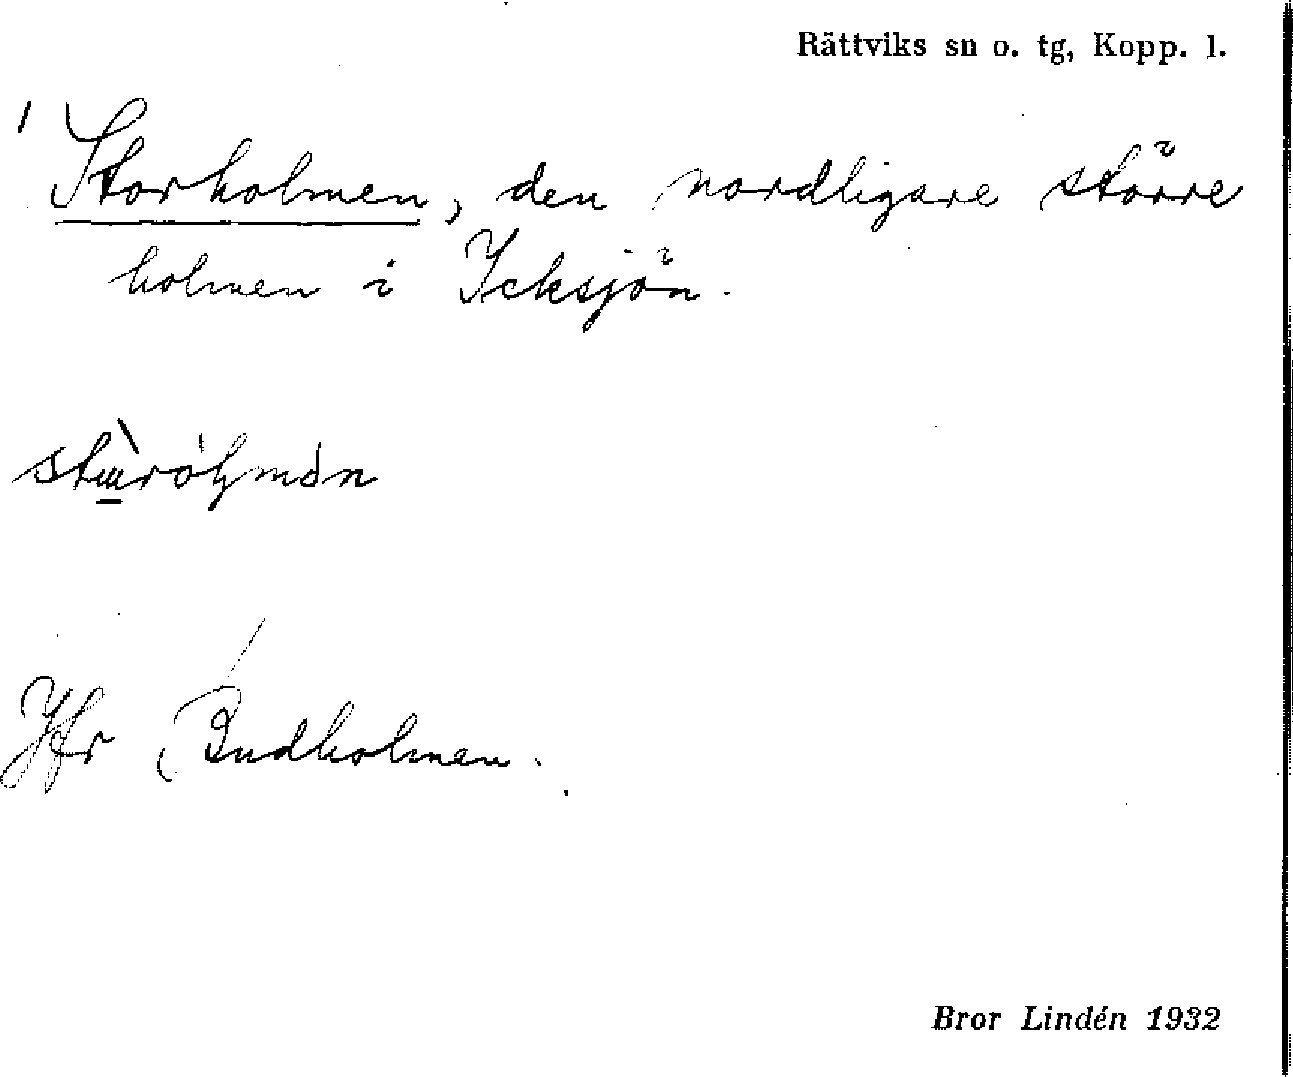 Rättviks sn o. tg, Kopp. l.
Storholmen, den nordligare större
holmen i Icksjön.
Jfr Budholmen.
Bror Lindén 1932